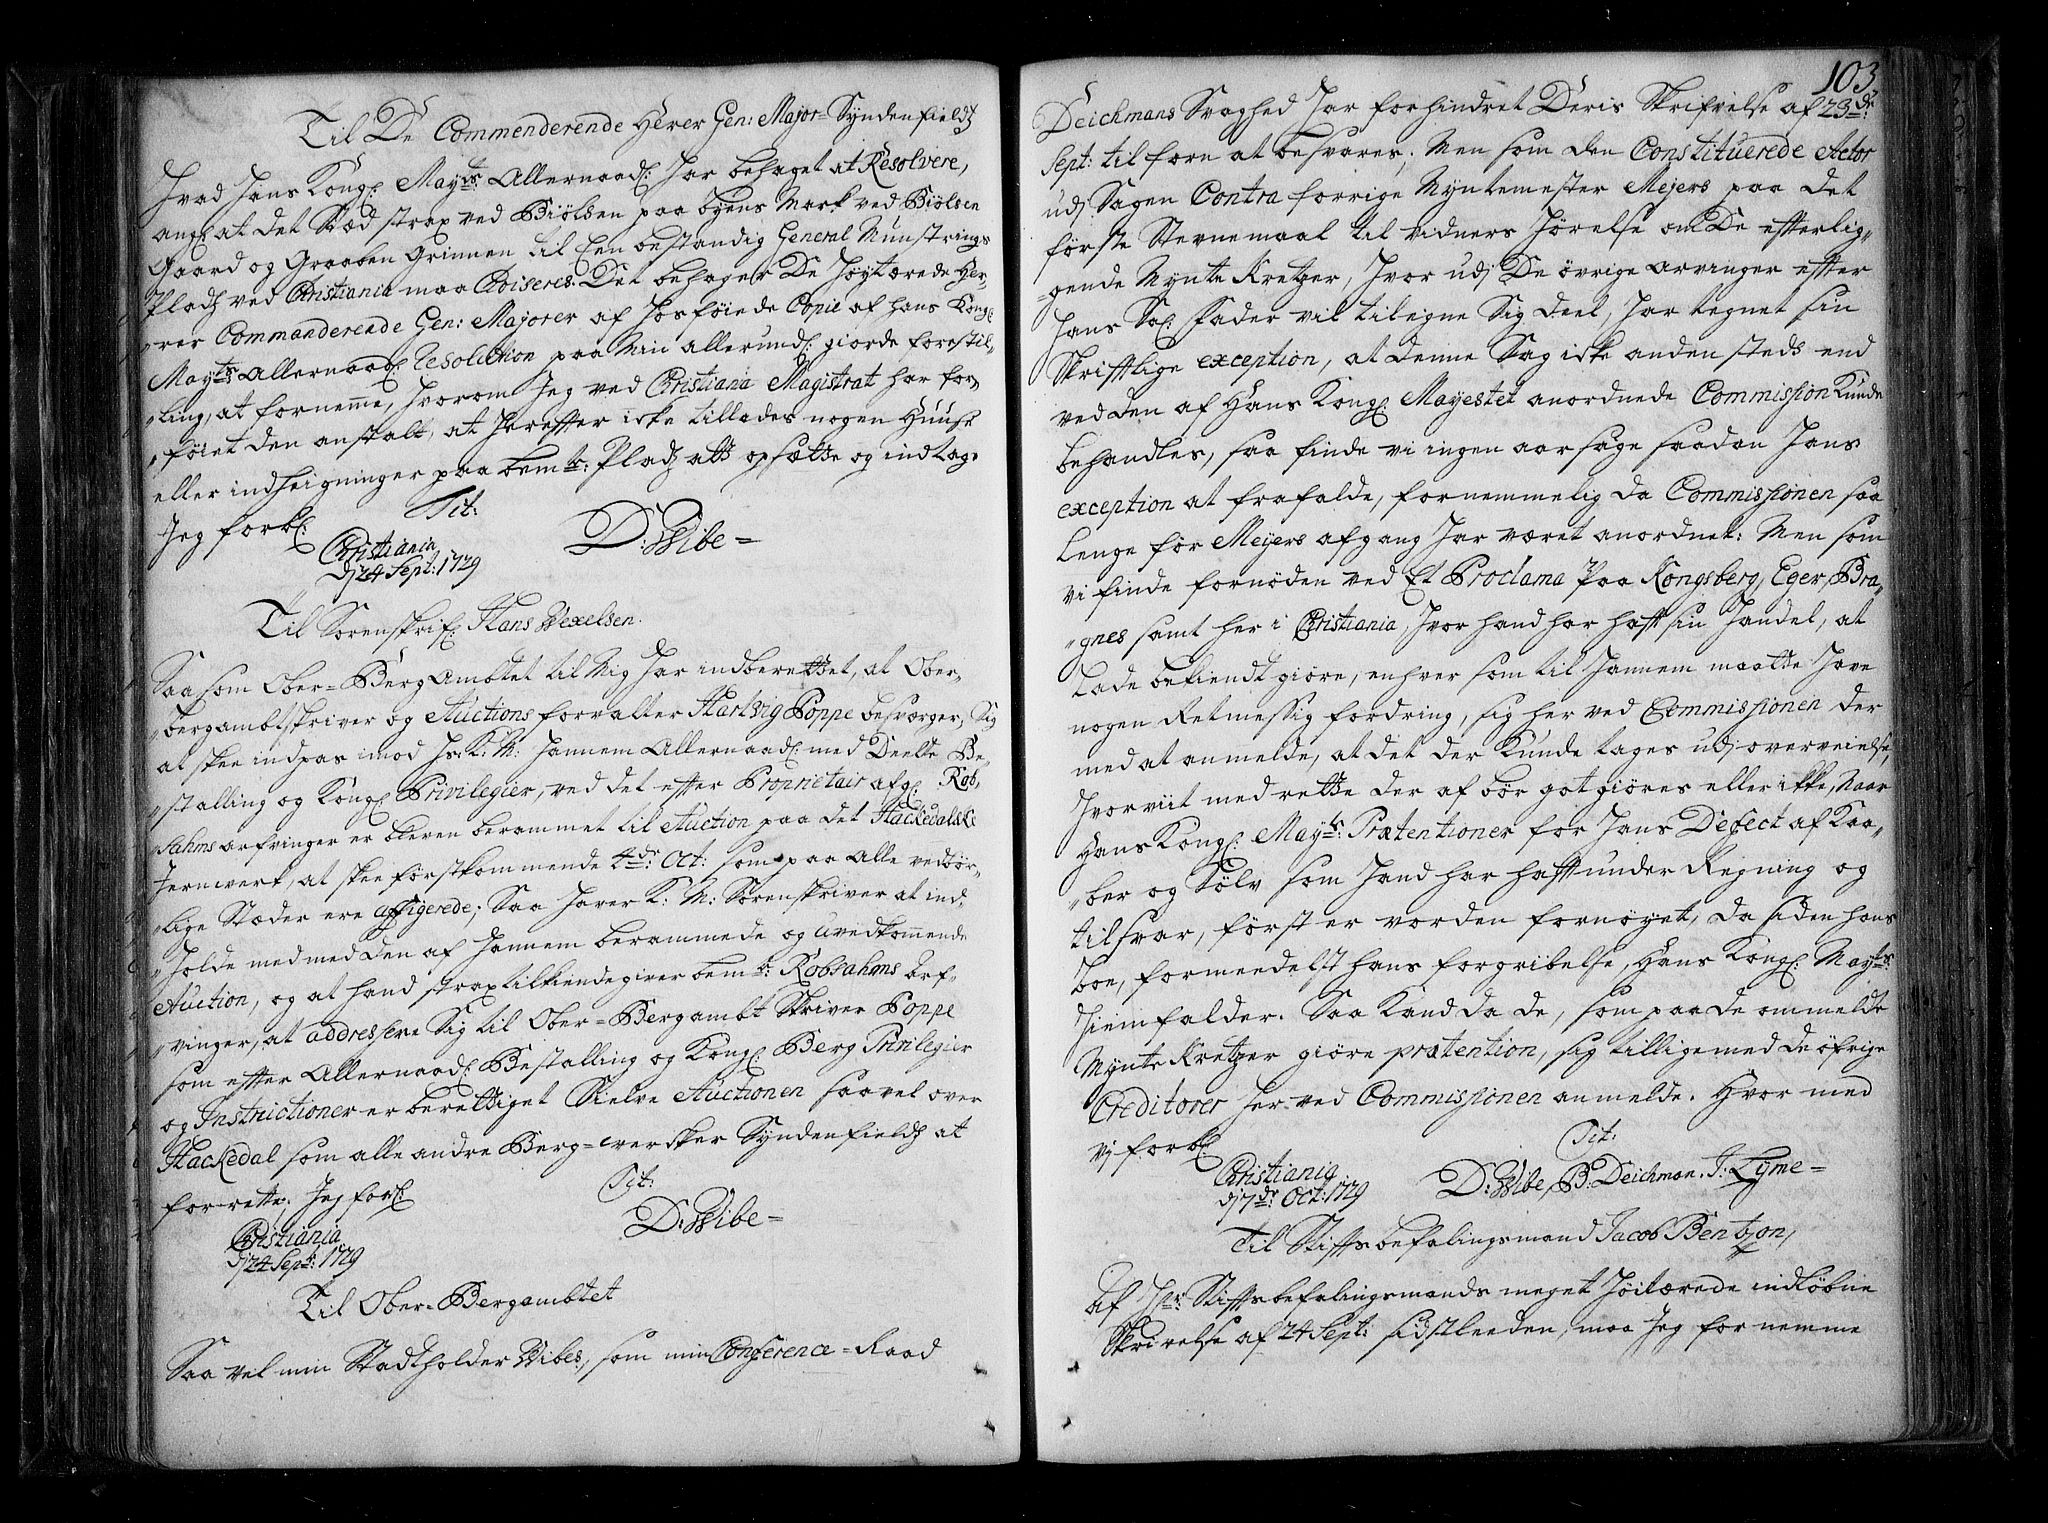 Til De Commenderende Herer Gen: Major= Syndenfields
Hvad Hans Kong: Mayts: Allernaad: har behaget at Resolvere,
ang: at det Stæd strax ved Biølsen paa byens Mark ved Biølsen
Gaard og Graaben Grinnen til Een bestandig General Munstrings
Plads ved Christiania maa Eviseres. Det behager De Høytærede Her-
„rer Commanderende Gen: Majorer af hosføiede Copie af hans Kong:
Mayts: Allernaad: Resolution paa Min allerund: giorde forestil-
„ling, at fornemme, hvorom Jeg ved Christiania Magistrat har for-
„føiet den anstalt, at herefter icke tillades nogen Huuse
eller indheigninger paa bemte: Plads att opsætte og indtage
Jeg forbl: Tit:
Christiania D: Wibe =
dj 24 Sept: 1729
Til Sorenskrif: Hans Wexelsen.
Saa som Ober=Berg Ambtet til Mig har indberettet, at Ober-
„bergambtskriver og Auctions forvalter Hartvig Poppe besværger, Sig
at skee indpas imod Hs: K: M: hannem Allernaad: med Deelte Be-
„stalling og Kong: Privilegier, ved det efter Proprietair afg: Rob-
„sahms arfvinger er bleven berammet til Auction paa det Hackedalske
Jernwerk, at skee førstkommende 4de: Oct: som paa Alle vedbør-
„lige Stæder ere affigerede; Saa haver K: M: Sorenskriver at ind-
„holde med med den af hannem berammede og Uvedkommende
Auction, og at hand strax tilkiendegiver bemte: Robsahms Arf-
„vinger, at addressere Sig til Ober=Bergambt Skriver Poppe
som efter Allernaad: Bestalling og Kong: Berg Privilegier
og Instructioner er berettiget Sielve Auctionen saavel over
Hackedal som alle andre Berg=wercker Syndenfields at
forrette. Jeg forbl: Tit:
Christiania D: Wibe =
dj 24 Sept: 1729
Til Ober=Bergambtet
Saa vel min Stadtholder Wibes, som min Conference=Raad
103
Deichmans Svaghed har forhindret Deris Skrifvelse af 23de:
Sept: tilforn at besvares; Men som den Constituerede Actor
udj Sagen Contra forrige Myntemester Mejers paa det
første Stevnemaal til vidners hørelse om De efterlig-
=gende Mynte Kretzer, hvor udj De øvrige arvinger efter
hans Sal: Fader vil tilegne Sig deel, har tegnet sin
Skrifftlige exception, at denne Sag icke anden steds end
ved den af Hans Kong: Mayestet anordnede Commission Kunde
behandles, saa finde vi ingen aarsage saadan hans
exception at frafalde, fornemmelig da Commissionen saa
lenge før Meyers afgang har været anordnet: Men som
vi finde fornøden ved Et Proclama paa Kongsberg, Eger, Bra-
„gnes samt her i Christiania, hvor hand har hafft sin handel, at
lade bekiendt giøre, enhver som til hannem maatte have
nogen Retmessig fordring, sig her ved Commissionen der
med at anmelde, at det der Kunde tages udj overveielse,
hvorvit med rette der af bør got giøres eller ikke, Naar
Hans Kong: Mayts: Prætentioner for hans Defect af Kaa-
„ber og Sølv som hand har hafft under Regning og
tilsvar, først er vorden fornøyet, da siden hans
boe, formedelst hans forgribelse, Hans Kong: Mayts:
hiemfalder. Saa Kand da de, som paa de ommeldte
Mynte Kretzer giøre prætention, sig tillige med de øfrige
Creditorer her ved Commissionen anmelde. Hvor med
vj forbl: Tit:
Christiania D: Wibe, B: Deichman. I: Lyme =
dj 7de: Oct: 1729
Til Stifftsbefalingsmand Jacob Bentzon,
Af Hr: Stifftsbefalingsmands meget høitærede indløbne
Skrivelse af 24 Sept: sidstleeden, maa Jeg fornemme